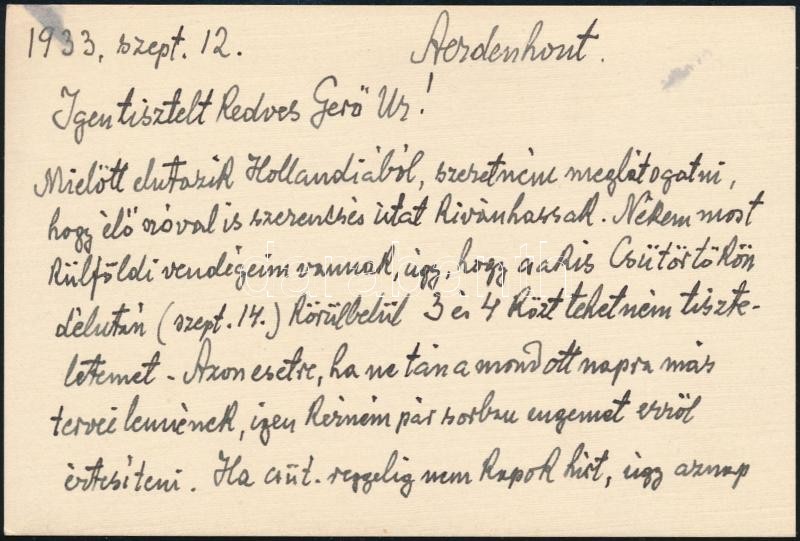 1933, szept. 12. Aerdenhout.
Igen tisztelt Kedves Gerő Ur!
Mielőtt elutazik Hollandiából, szeretném meglátogatni,
hogy élő szóval is szerencsés útat kivánhassak. Nékem most
külföldi vendégeim vannak, úgy, hogy csakis Csütörtökön
délután (szept. 14.) körülbelül 3 és 4 közt tehetném tiszte-
letemet - Azon esetre, ha ne tán a mondott napra más
tervei lennének, igen kérném pár sorban engemet erről
értesíteni. Ha csüt. reggelig nem kapok hirt, úgy aznap